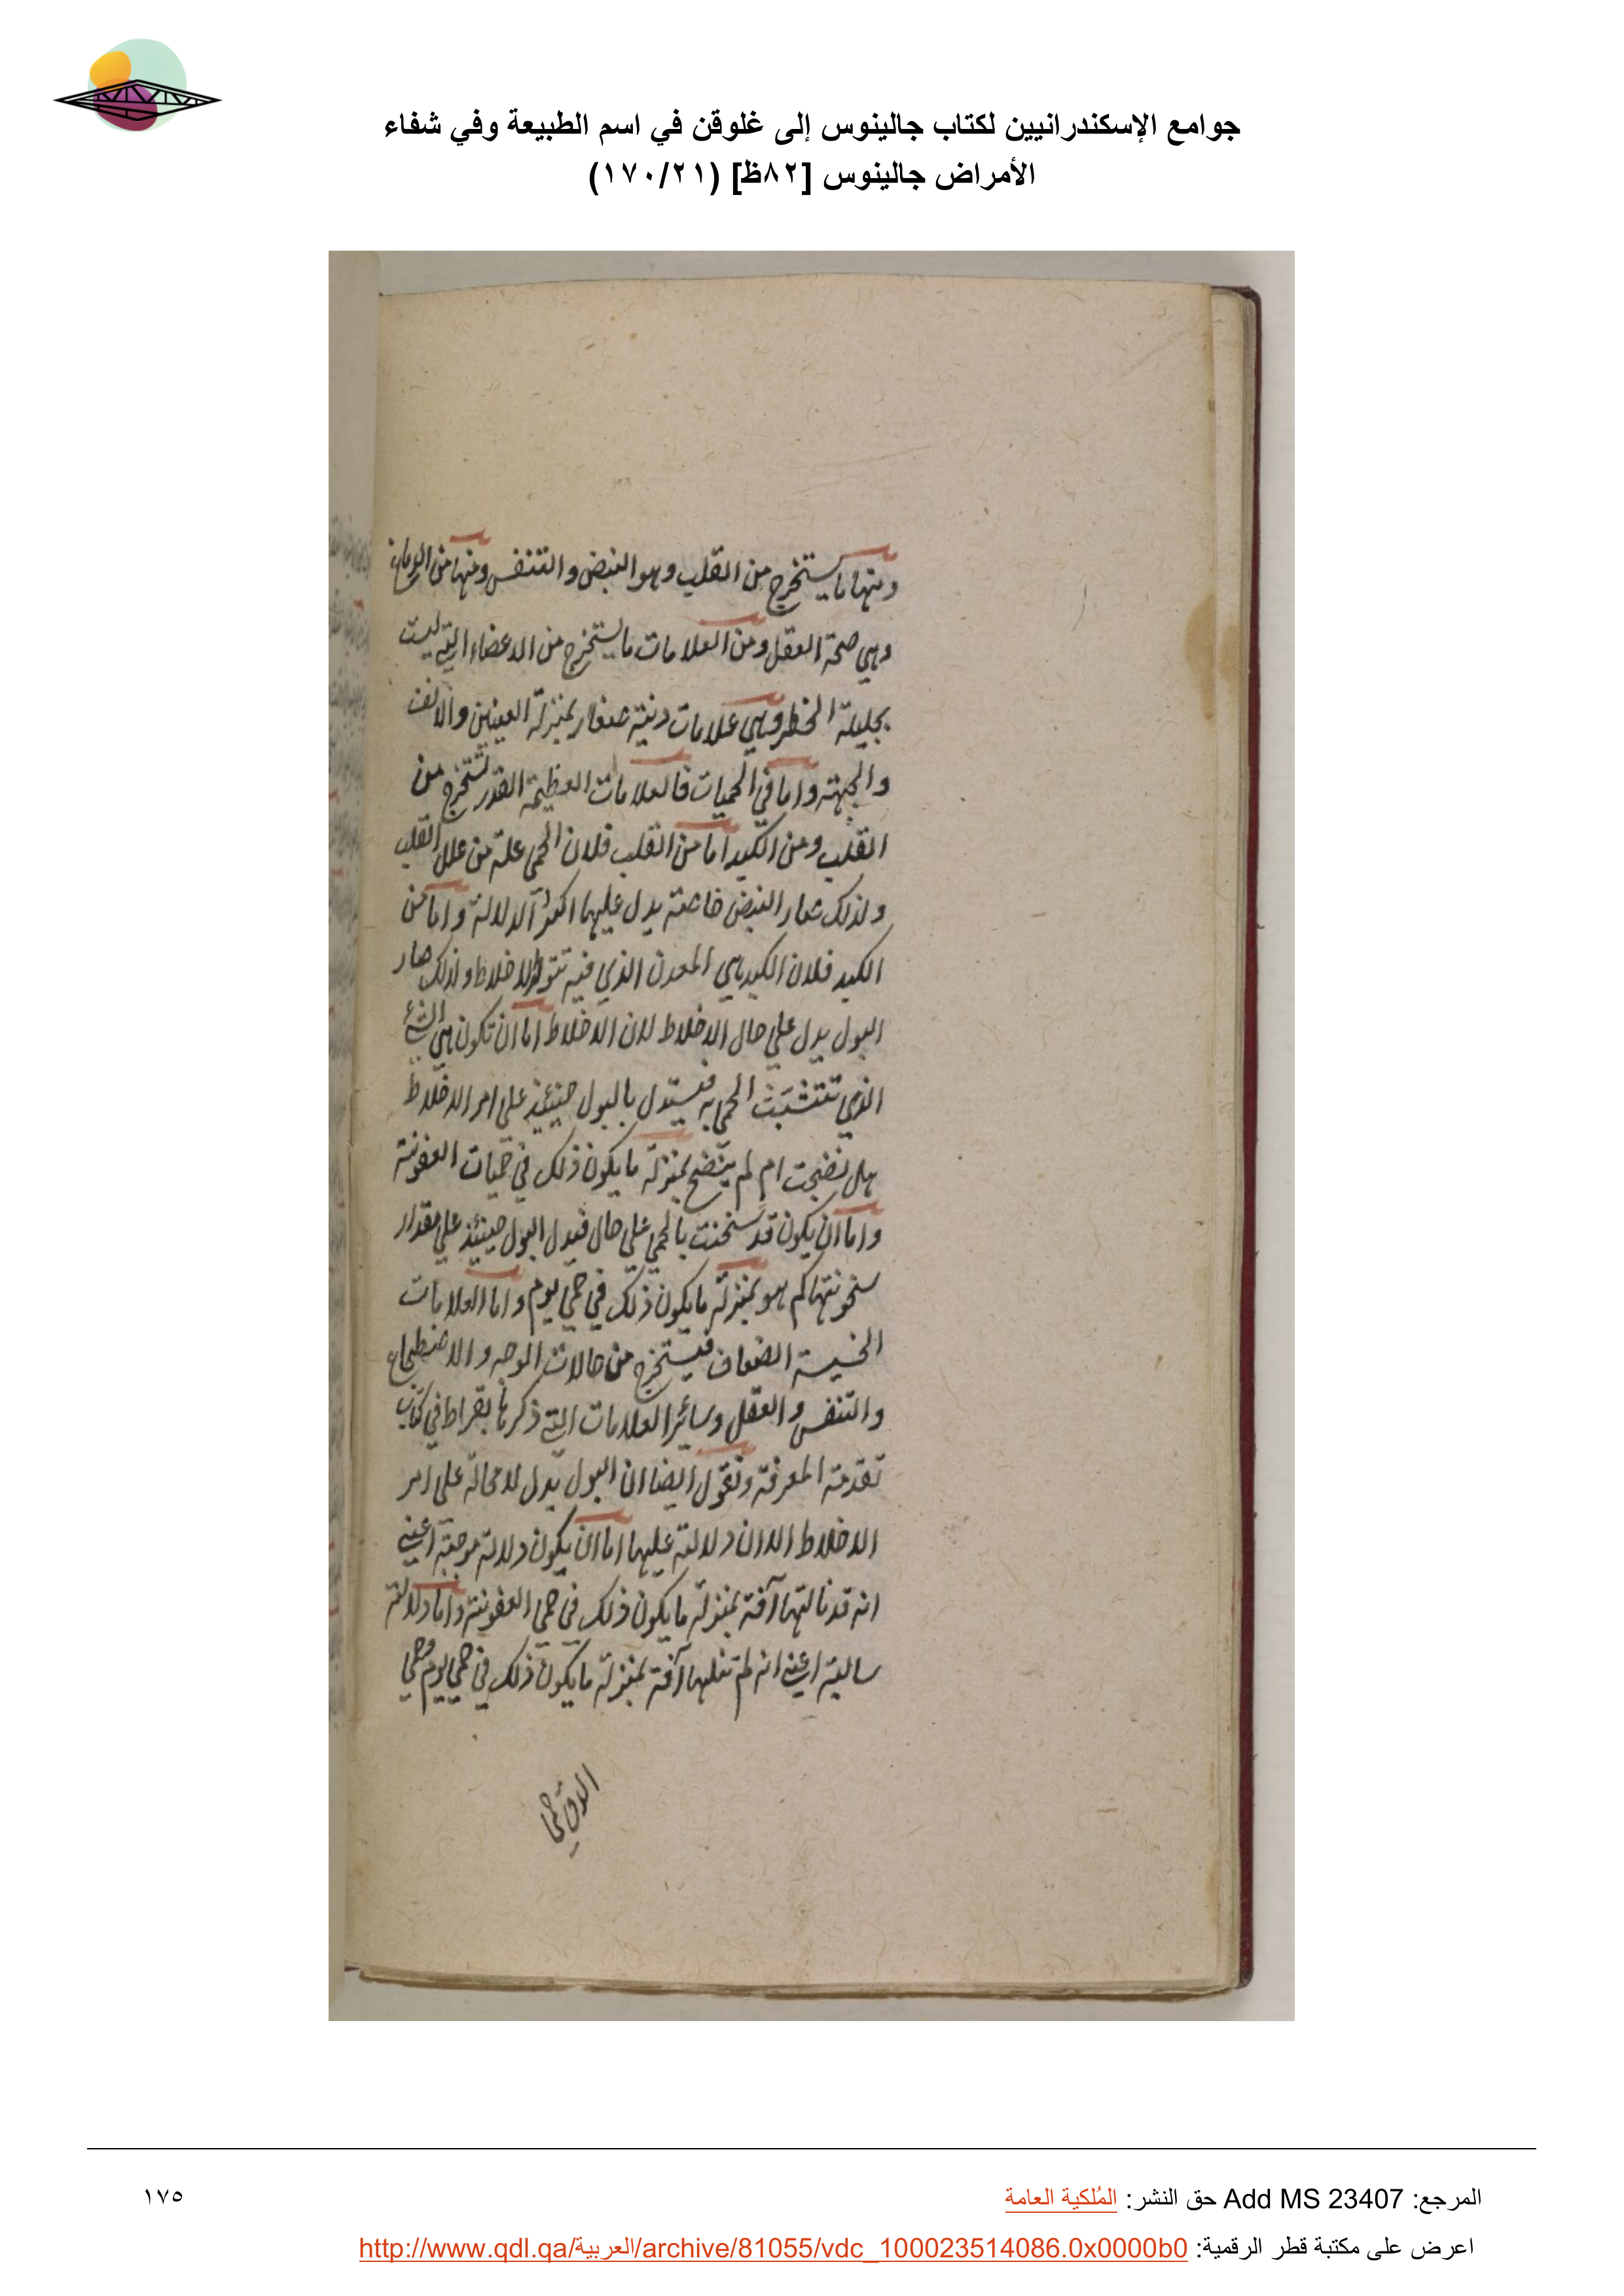 جوامع الإسكندرانيين لكتاب جالينوس إلى غلوقن في اسم الطبيعة وفي شفاء
الأمراض جالينوس [٨٢ظ] (١٧٠/٢١)
ومنها ما يستخرج من القلب وهو النبض والتنفس ومنها من الدماغ
وهي صحة العقل ومن العلامات ما يستخرج من الاعضاء التي ليست
بجليلة الخطر وهي علامات دنية صغار بمنزلة العينين والانف
والجبهة واما في الحميات فالعلامات العظيمة القدر تستخرج من
القلب ومن الكبد اما من القلب فلان الحمى علة من علل القلب
ولذلك صار النبض خاصة يدل عليها اكثر الدلالة واما من
الكبد فلان الكبد هي المعدن الذي فيه تتولد الاخلاط ولذلك صار
البول يدل علي حال الاخلاط لان الاخلاط اما ان تكون هي الشئ
الذي تتشبث الحمى به فيستدل بالبول حينئذ على امر الاخلاط
هل نضجت ام لم ينضج بمنزلة ما يكون ذلك في حميات العفونة
واما ان يكون قد سخنت بالحمي علي حال فيدل البول حينئذ علي مقدار
سخونتها كم هو بمنزلة ما يكون ذلك في حمي يوم واما العلامات
الخسيسة الضعاف فيستخرج من حالات الوجه والاضطجاع
والتنفس والعقل وسائر العلامات التي ذكرها بقراط في كتاب
تقدمة المعرفة ونقول ايضا ان البول يدل لا محالة على امر
الاخلاط الا ان دلالته عليها اما ان يكون دلالة موجبة اعني
انه قد نالتها آفة بمنزلة ما يكون ذلك في حمي العفونة واما دلالة
سالبة اعني انه لم تنلها آفة بمنزلة ما يكون ذلك في حمي يوم وحمي
المرجع: Add MS 23407 حق النشر: المُلكية العامة
١٧٥
اعرض على مكتبة قطر الرقمية: http://www.qdl.qa/العربية/archive/81055/vdc_100023514086.0x0000b0